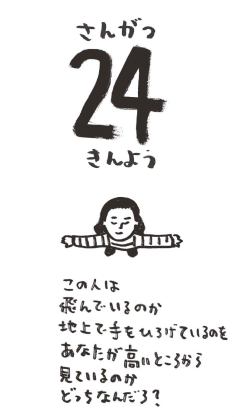 さんがつ
24
きんよう
この人は
飛んでいるのか
地上で手をひろげているのを
あなたが高いところから
見ているのか
どっちなんだろ？